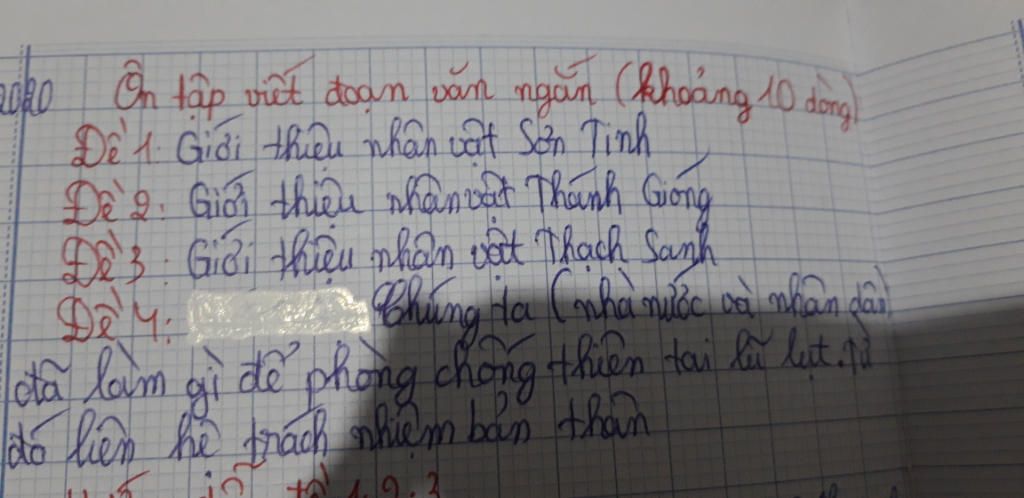 2020 Ôn tập viết đoạn văn ngắn (Khoảng 10 dòng)
Đề 1: Giới thiệu nhân vật Sơn Tinh
Đề 2: Giới thiệu nhân vật Thánh Gióng
Đề 3: Giới thiệu nhân vật Thạch Sanh
Đề 4: Chúng ta (nhà nước và nhân dân)
đã làm gì để phòng chống thiên tai lũ lụt. Từ
đó liên hệ trách nhiệm bản thân
1, 2, 3